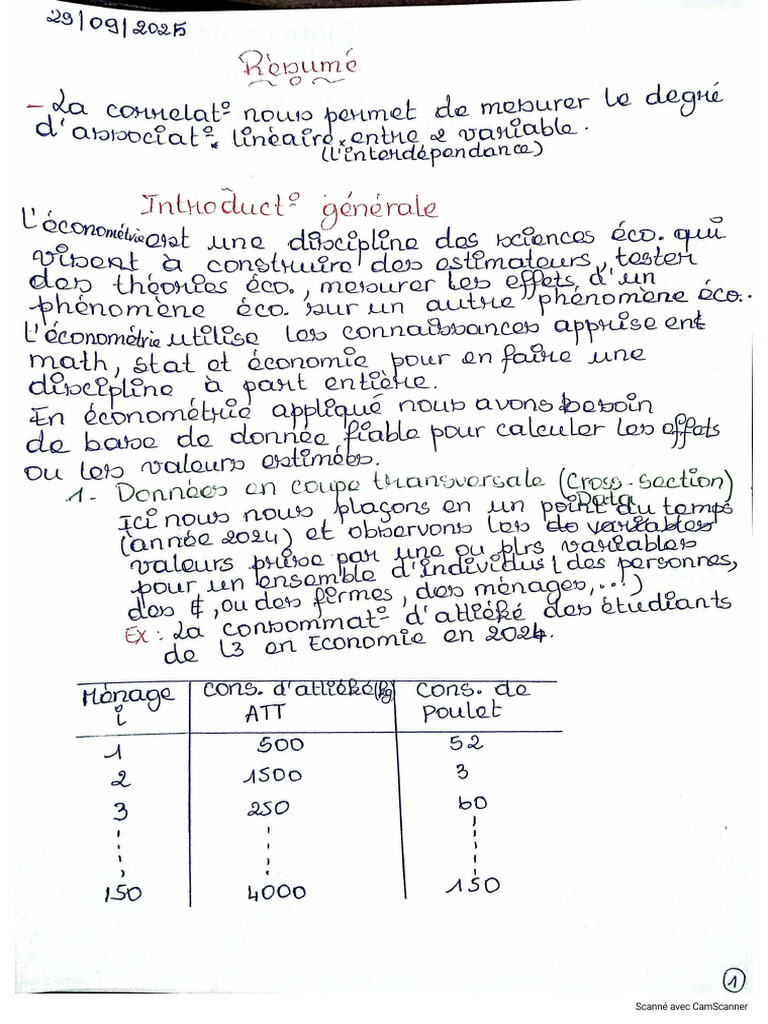 29/09/2025
Résumé
- La correlat° nous permet de mesurer le degré
d'associat° linéaire entre 2 variable.
(l'interdépendance)
Introduct° générale
L'économétrie est une discipline des sciences éco. qui
visent à construire des estimateurs, tester
des théories éco., mesurer les effets d'un
phénomène éco. sur un autre phénomène éco..
L'économétrie utilise les connaissances apprise ent
math, stat et économie pour en faire une
discipline à part entière.
En économétrie appliqué nous avons besoin
de base de donnée fiable pour calculer les effets
ou les valeurs estimées.
1- Données en coupe transversale (Cross-section)
Data
Ici nous nous plaçons en un point du temps
(année 2024) et observons les de variables
valeurs prise par une ou plrs variables
pour un ensemble d'individus (des personnes,
des , ou des firmes, des ménages,...)
Ex: La consommat° d'attiéké des étudiants
de L3 en Economie en 2024.
Ménage i | cons. d'attiéké(kg) ATT | cons. de Poulet
1 500 52
2 1500 3
3 250 60
150 4000 150
1
Scanné avec CamScanner